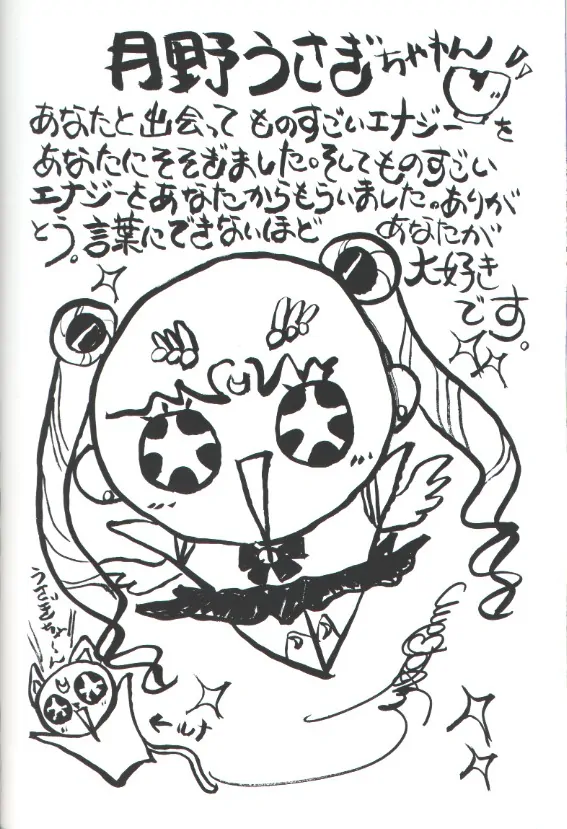 月野うさぎちゃわん
あなたと出会ってものすごいエナジーを
あなたにそそぎました。そしてものすごい
エナジーをあなたからもらいました。ありが
とう。言葉にできないほど あなたが
大好き
です。
うさぎちゃ〜ん
←ルナ